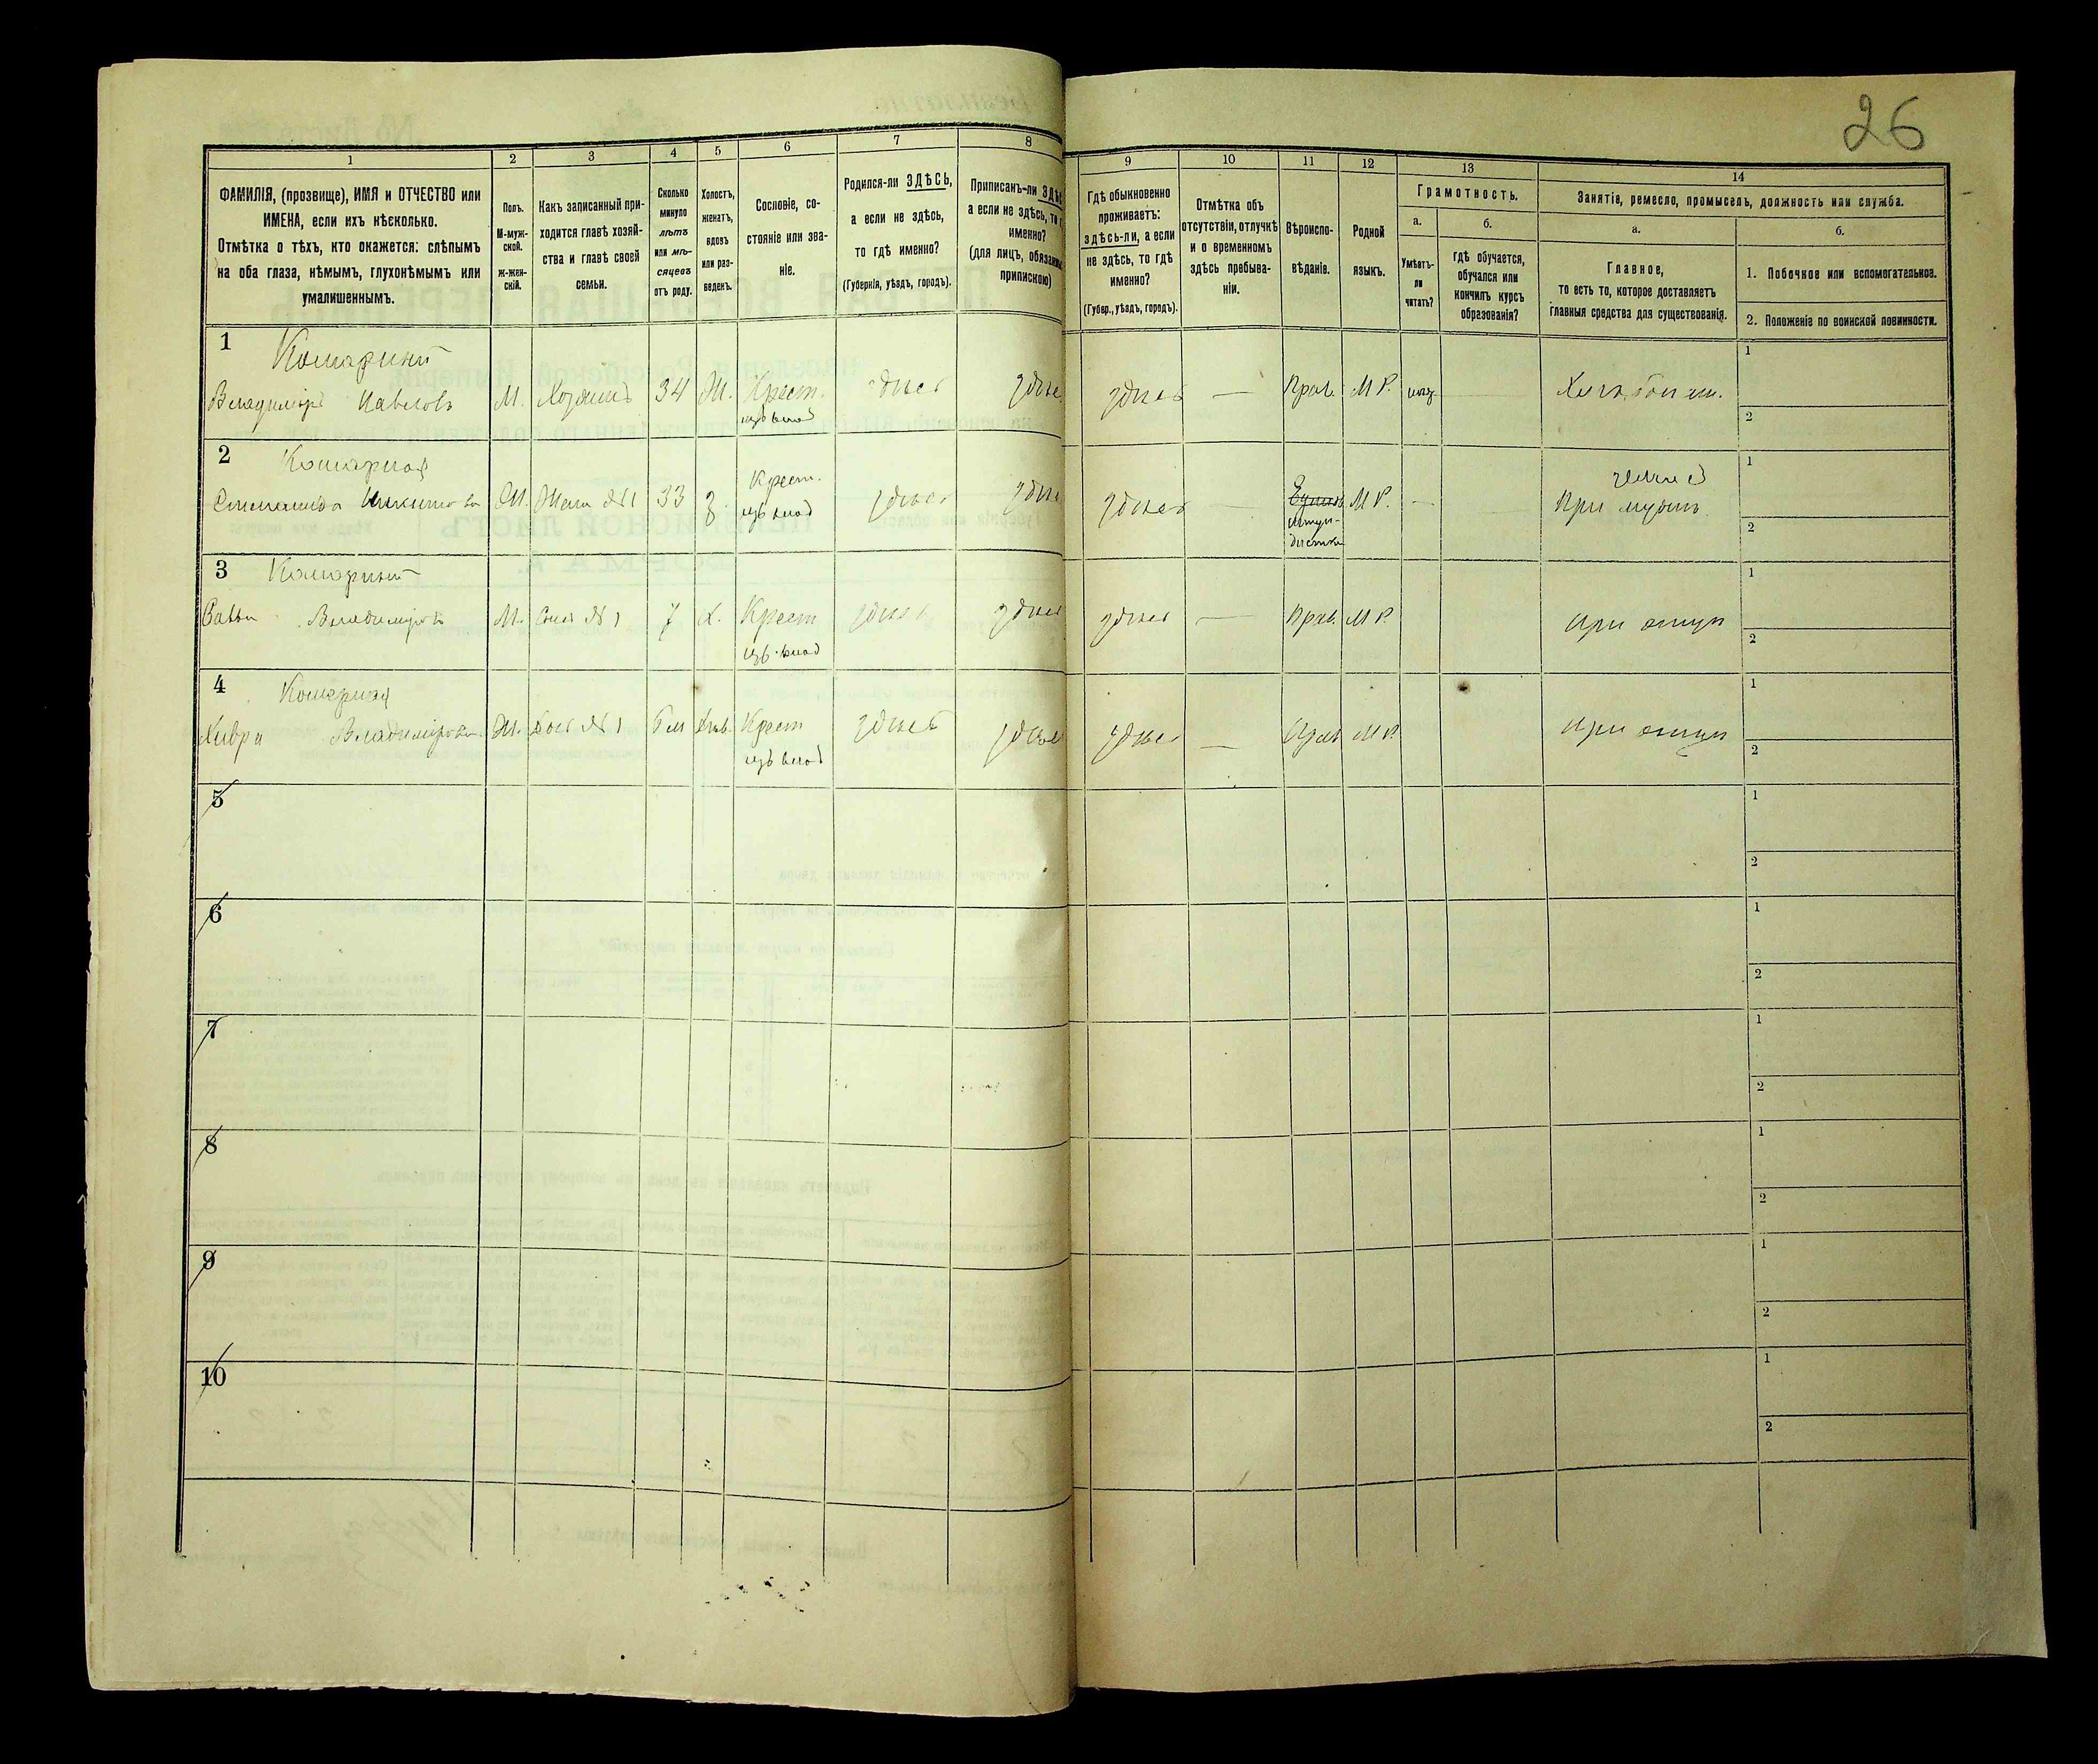 26
1
2
3
4
5
6
7
8
ФАМИЛІЯ, (прозвище), ИМЯ и ОТЧЕСТВО или
ИМЕНА, если ихъ нѣсколько.
Отмѣтка о тѣхъ, кто окажется: слѣпымъ
на оба глаза, нѣмымъ, глухонѣмымъ или
умалишеннымъ.
Полъ.
М-муж-
ской.
ж-жен-
скій.
Какъ записанный при-
ходится главѣ хозяй-
ства и главѣ своей
семьи.
Сколько
минуло
лѣтъ
или мѣ-
сяцевъ
отъ роду.
Холостъ,
женатъ,
вдовъ
или раз-
веденъ.
Сословіе, со-
стояніе или зва-
ніе.
Родился-ли ЗДѢСЬ,
а если не здѣсь,
то гдѣ именно?
(Губернія, уѣздъ, городъ).
Приписанъ-ли ЗДѢС
а если не здѣсь, то г
именно?
(для лицъ, обязанн
припискою)
9
10
11
12
13
14
Гдѣ обыкновенно
проживаетъ:
здѣсь-ли, а если
не здѣсь, то гдѣ
именно?
(Губер., уѣздъ, городъ).
Отмѣтка объ
отсутствіи, отлучкѣ
и о временномъ
здѣсь пребыва-
ніи.
Вѣроиспо-
вѣданіе.
Родной
языкъ.
Грамотность.
а.
б.
Умѣетъ-
ли
читать?
гдѣ обучается,
обучался или
кончилъ курсъ
образованія?
Занятіе, ремесло, промыселъ, должность или служба.
а.
б.
Главное,
то есть то, которое доставляетъ
главныя средства для существованія.
1. Побочное или вспомогательное.
2. Положеніе по воинской повинности.
1
Комарный
Владиміръ Павловъ М. Хозяинъ 34 Ж. Крест. здѣсь
изъ влад
здѣсь — Прав. М Р. —
1
2
2 Комарная
Никитова Ж. Жена № 1 33 З. Крест. здѣсь
изъ влад
здѣсь — М Р. — При мужѣ
1
2
3 Комарный
Савва Владиміровъ М. Сынъ № 1 7 Х. Крест здѣсь
изъ влад
здѣсь — Прав. М Р. При отцѣ
1
2
4 Комарная
Хивря Владимірова Ж. Доч № 1 Дѣв. Крест здѣсь
изъ влад
здѣсь — Прав М Р. При отцѣ
1
2
5
1
2
6
1
2
7
1
2
8
1
2
9
1
2
10
1
2